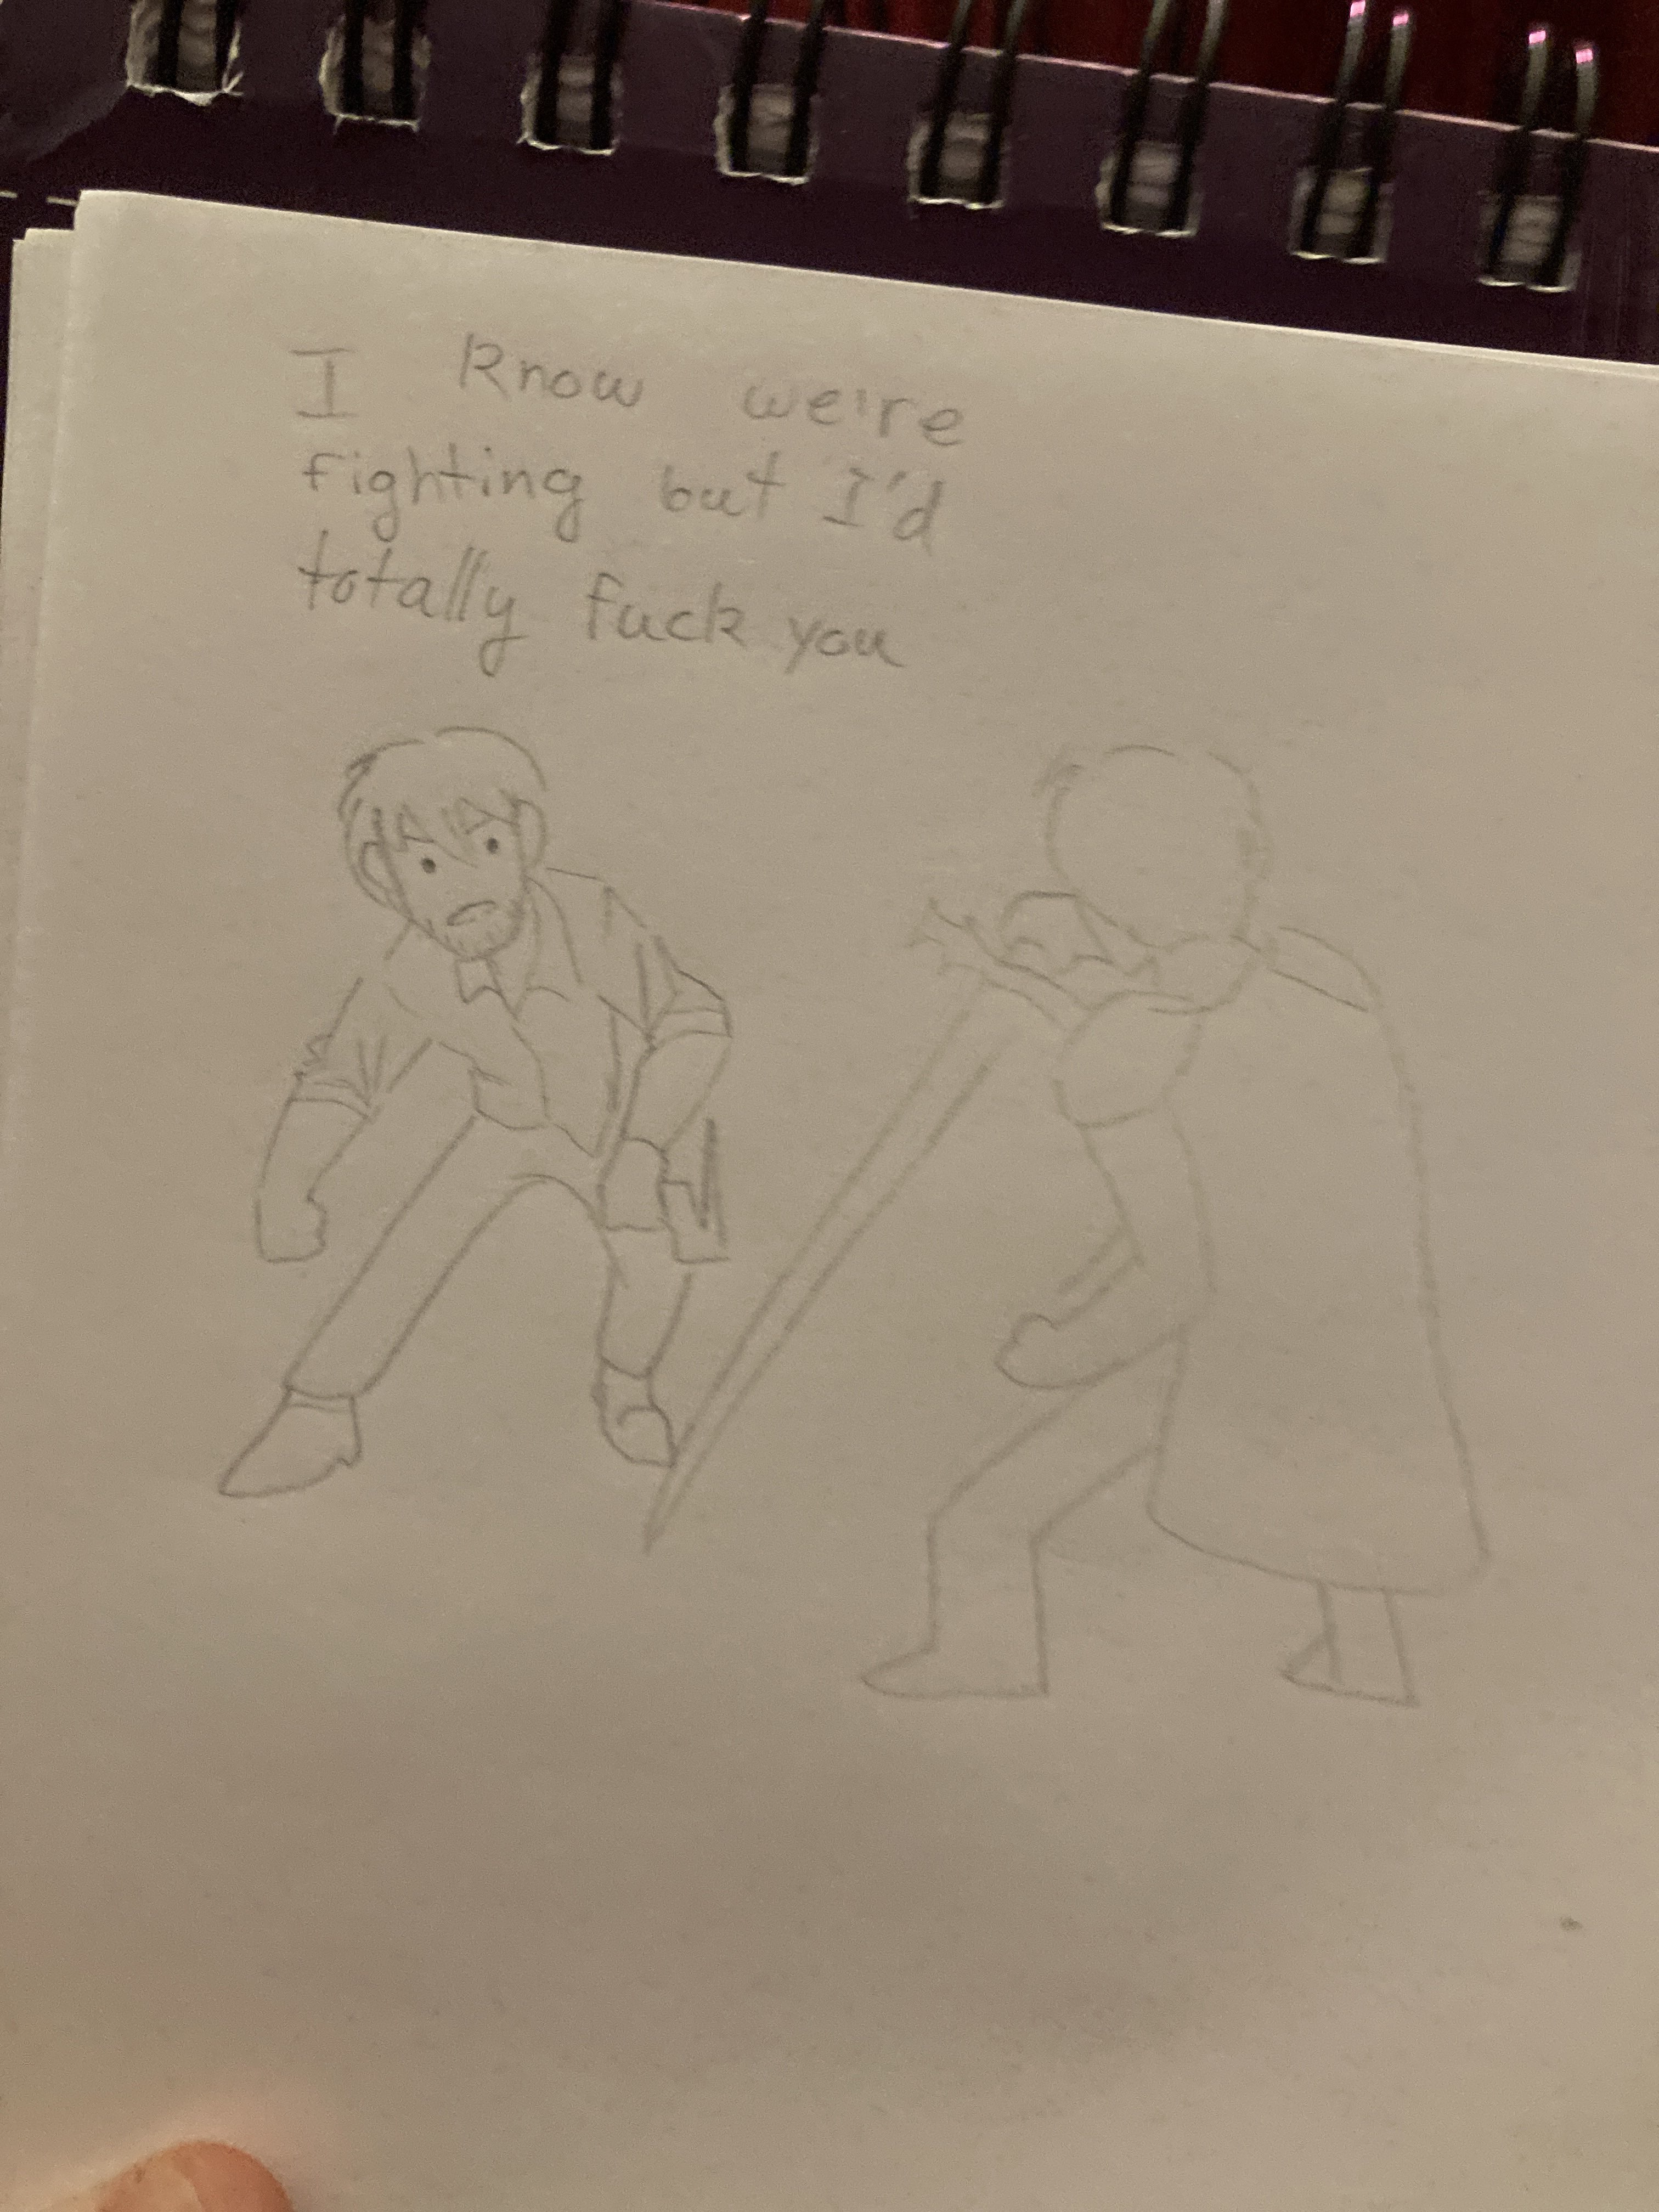 I know we're
fighting but I'd
totally fuck you